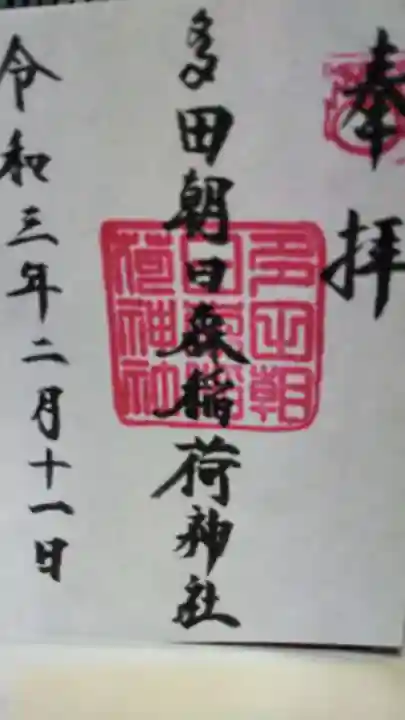 奉拝
多田朝日森稲荷神社
令和三年二月十一日
多田朝
日森稲
荷神社